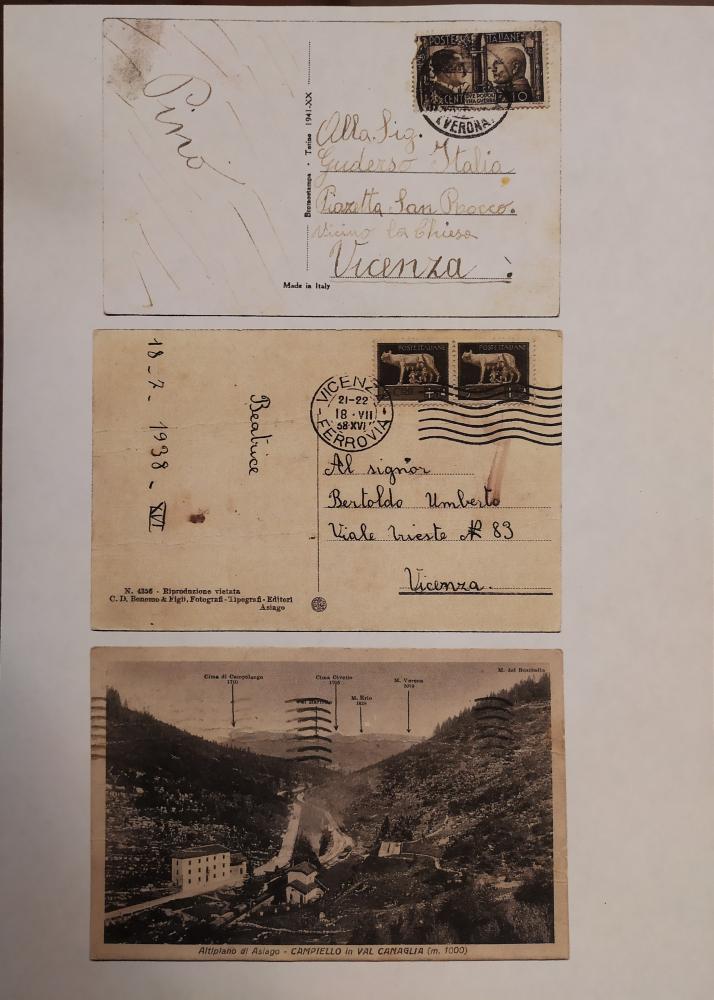 POSTE ITALIANE
CENT 10
DUE POPOLI
(VERONA)
Pino
Bromostampa - Torino 1941-XX
Alla Sig.
Guderso Italia
Piazetta San Rocco.
Vicino la Chiesa
Vicenza
Made in Italy
POSTE ITALIANE
POSTE ITALIANE
VICENZA
21-22
18·VII
38·XVI
FERROVIA
18-7-1938-XVI
Beatrice
Al signor
Bertoldo Umberto
Viale Trieste N 83
Vicenza.
N. 4356 - Riproduzione vietata
C. D. Bonomo & Figli, Fotografi-Tipografi-Editori
Asiago
Cima di Campolongo
Cima Civello
M. Erio
M. Verena
M. del Busibollo
Altipiano di Asiago - CAMPIELLO in VAL CANAGLIA (m. 1000)